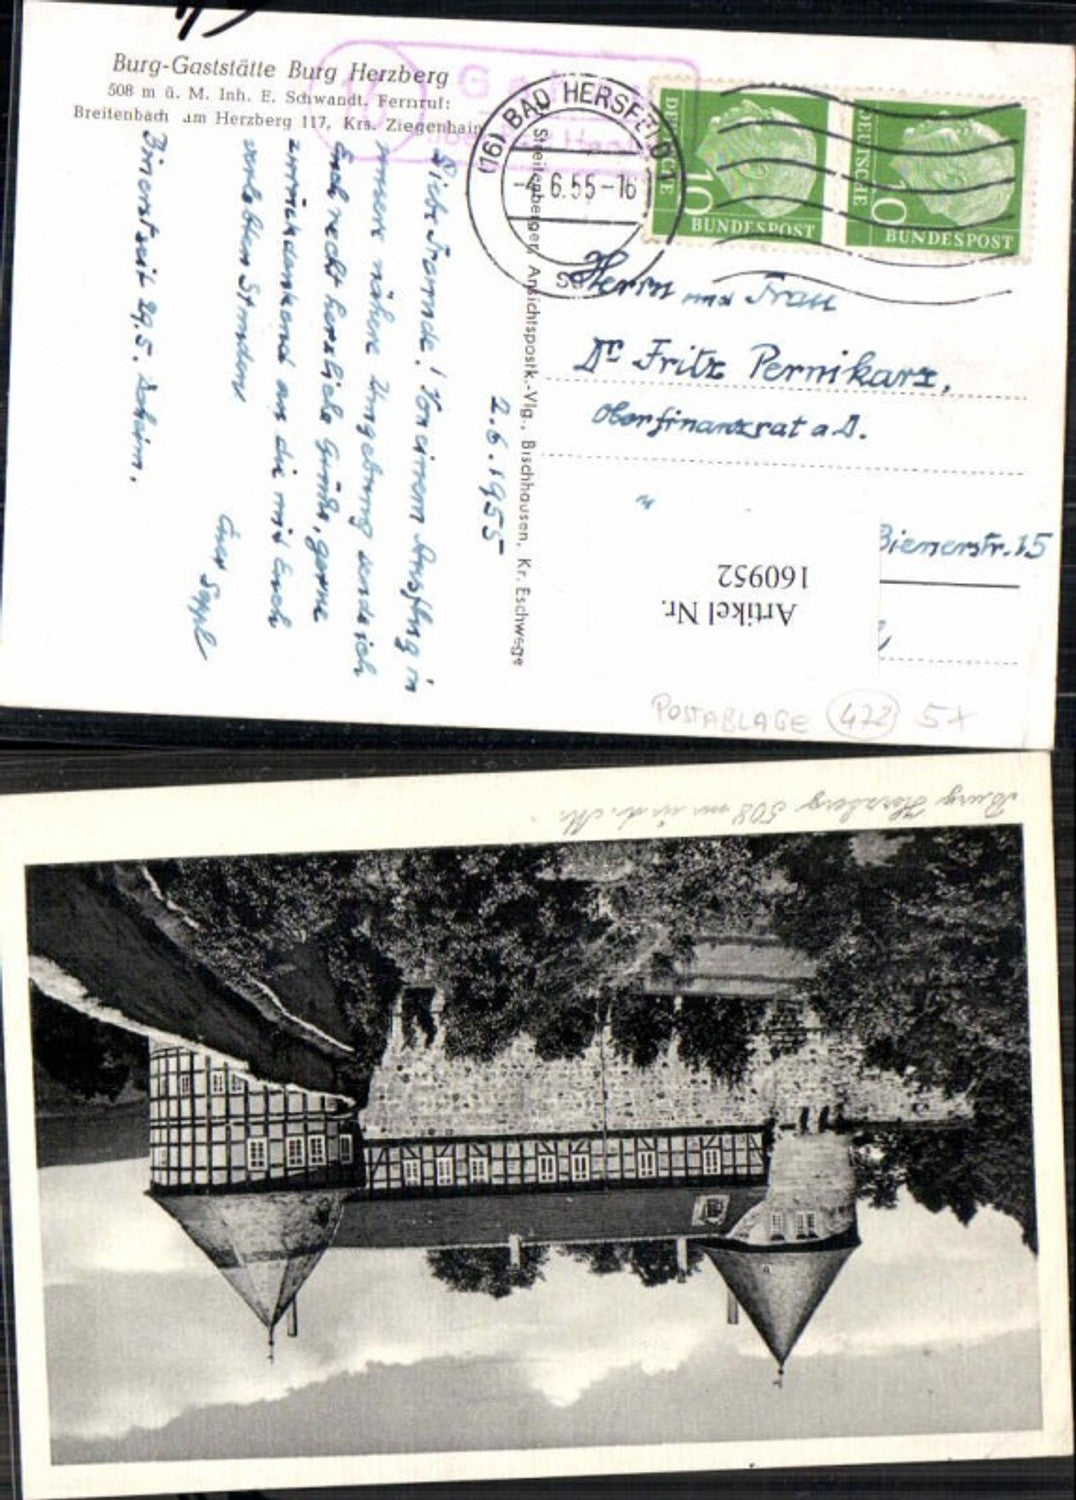 Burg-Gaststätte Burg Herzberg
508 m ü. M. Inh. E. Schwandt. Fernruf:
Breitenbach am Herzberg 117, Krs. Ziegenhain
(16) BAD HERSFELD 1
-4.6.55-16
DEUTSCHE
10
BUNDESPOST
DEUTSCHE
10
BUNDESPOST
Herrn und Frau
Dr Fritz Pernikarz,
Oberfinanzrat a D.
Bienerstr. 15
Artikel Nr.
160952
POSTABLAGE 472 5x
Streitenberger, Ansichtspostk.-Vlg., Bischhausen, Kr. Eschwege
2.6.1955
Liebe Freunde! Von einem Ausflug in
unsere nähere Umgebung sende ich
Euch recht herzliche Grüße, gerne
zurückdenkend an die mit Euch
verlebten Stunden
Euer Seppl
seit 29.5. daheim.
Burg Herzberg 508 m ü. d. M.